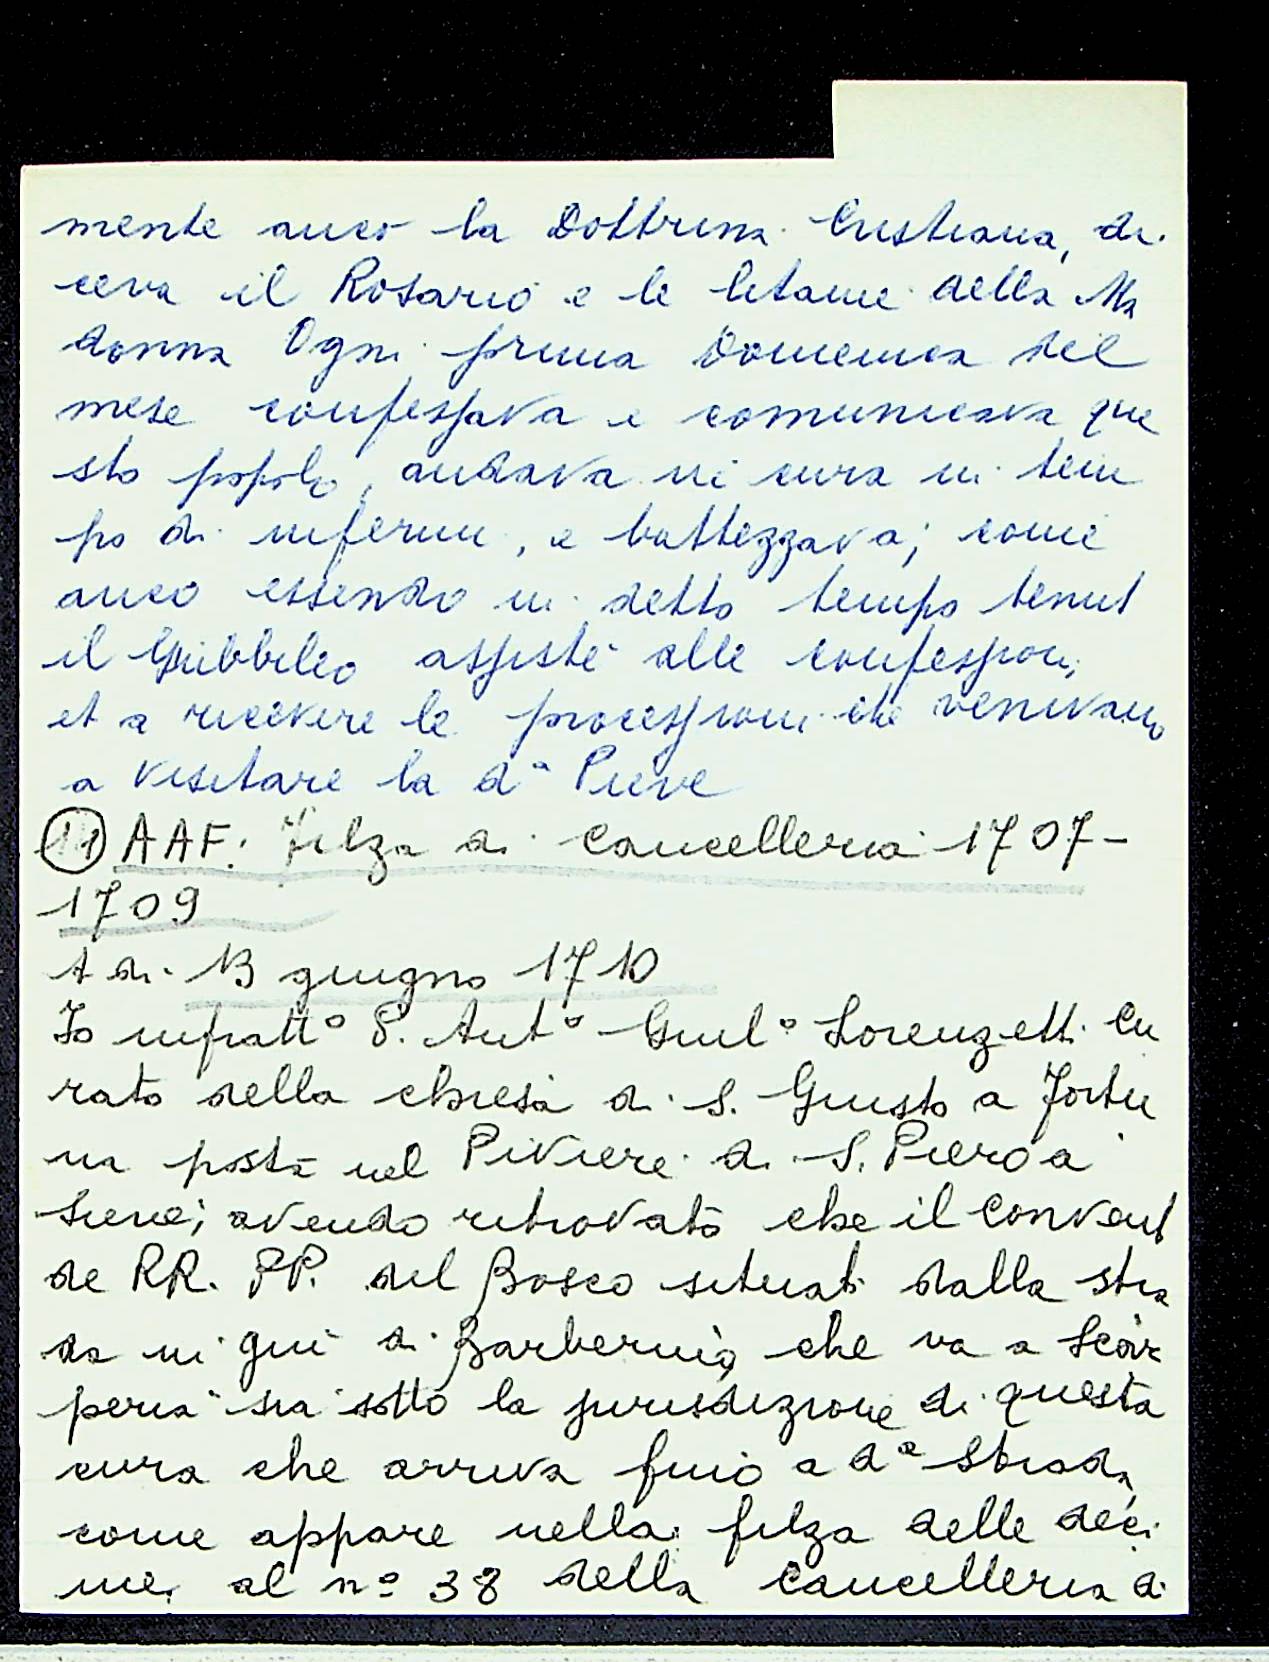 mente anco la Dottrina Cristiana, di
ceva il Rosario e le letanie della Ma
donna Ogni prima Domenica del
mese confessava e comunicava que
sto popolo, andava in cura in tem
po di infermi, e battezzava; come
anco essendo in detto tempo
il Giubbileo assisté alle confessioni,
et a ricevere le processioni che venivano
a visitare la dª Pieve
11 AAF. Filza di Cancelleria 1707-
1709
A di 13 giugno 1710
Io infrattº P. Antº Giulº Lorenzetti Cu
rato della chiesa di S. Giusto a Fortu
na posta nel Piviere di S. Piero a
Sieve; avendo ritrovato che il Convent
de RR. PP. del Bosco situati dalla stra
da in giù di Barberino, che va a Scar
peria sia sotto la jurisdizione di questa
cura che arriva fino a dª Strada,
come appare nella filza delle deci
me, al nº 38 della Cancelleria di